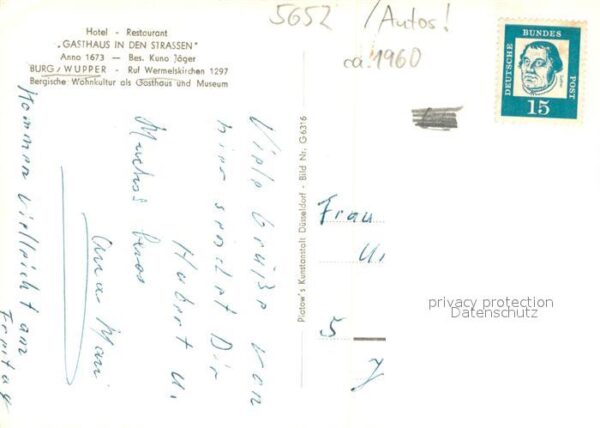 5652 /Autos!
ca. 1960
Hotel - Restaurant
„GASTHAUS IN DEN STRASSEN"
Anno 1673 — Bes. Kuno Jäger
BURG/WUPPER - Ruf Wermelskirchen 1297
Bergische Wohnkultur als Gasthaus und Museum
DEUTSCHE BUNDES POST
15
Viele Grüße von
hier sendet Dir
Hubert u.
Kommen vielleicht am
Freitag
Platow's Kunstanstalt Düsseldorf - Bild Nr. G 6316
Frau
U.
5
privacy protection
Datenschutz